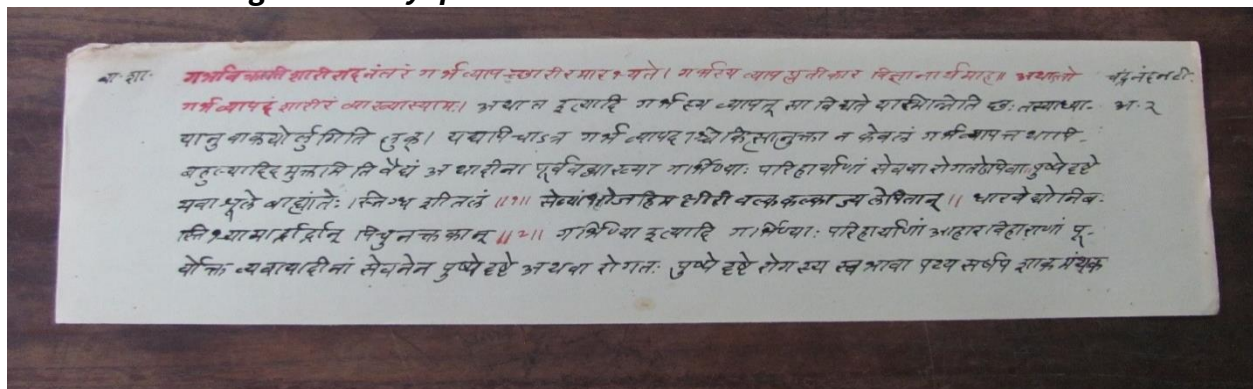 वा. शा. गर्भावक्रांतिशारीरादनंतरं गर्भव्यापच्छारीरमारभ्यते। गर्भस्य व्यापत्प्रतीकार विज्ञानार्थमाह॥ अथातो चंद्रनंदनटी.
गर्भव्यापदं शारीरं व्याख्यास्यामः। अथात इत्यादि गर्भस्य व्यापत् सा विद्यते यस्मिन्निति छः तस्याध्या- अ. २
यानुवाकयोर्लुगिति लुक्। यद्यपि चाऽत्र गर्भव्यापद न केवलं गर्भव्यापत्तथापि-
बाहुल्यादिदमुक्तमिति अथादीना पूर्ववद्व्याख्या गर्भिण्याः परिहार्याणां सेवया रोगतोपिवा॥ पुष्पे दृष्टे
थवा शूले बाह्यांतः। स्निग्ध शीतलं ॥१॥ सेव्यांभोज हिम क्षीरी वल्ककल्काज्य लेपितान्॥ धारयेद्योनिव-
स्तिभ्यामार्द्रार्द्रान् पिचुनक्तकान् ॥२॥ गर्भिण्या इत्यादि गर्भिण्याः परिहार्याणां आहारविहाराणां पू-
र्वोक्त व्यवायादीनां सेवनेन पुष्पे दृष्टे अथवा रोगतः पुष्पे दृष्टे रोगस्य स्वभावा पथ्य सर्षप शाक